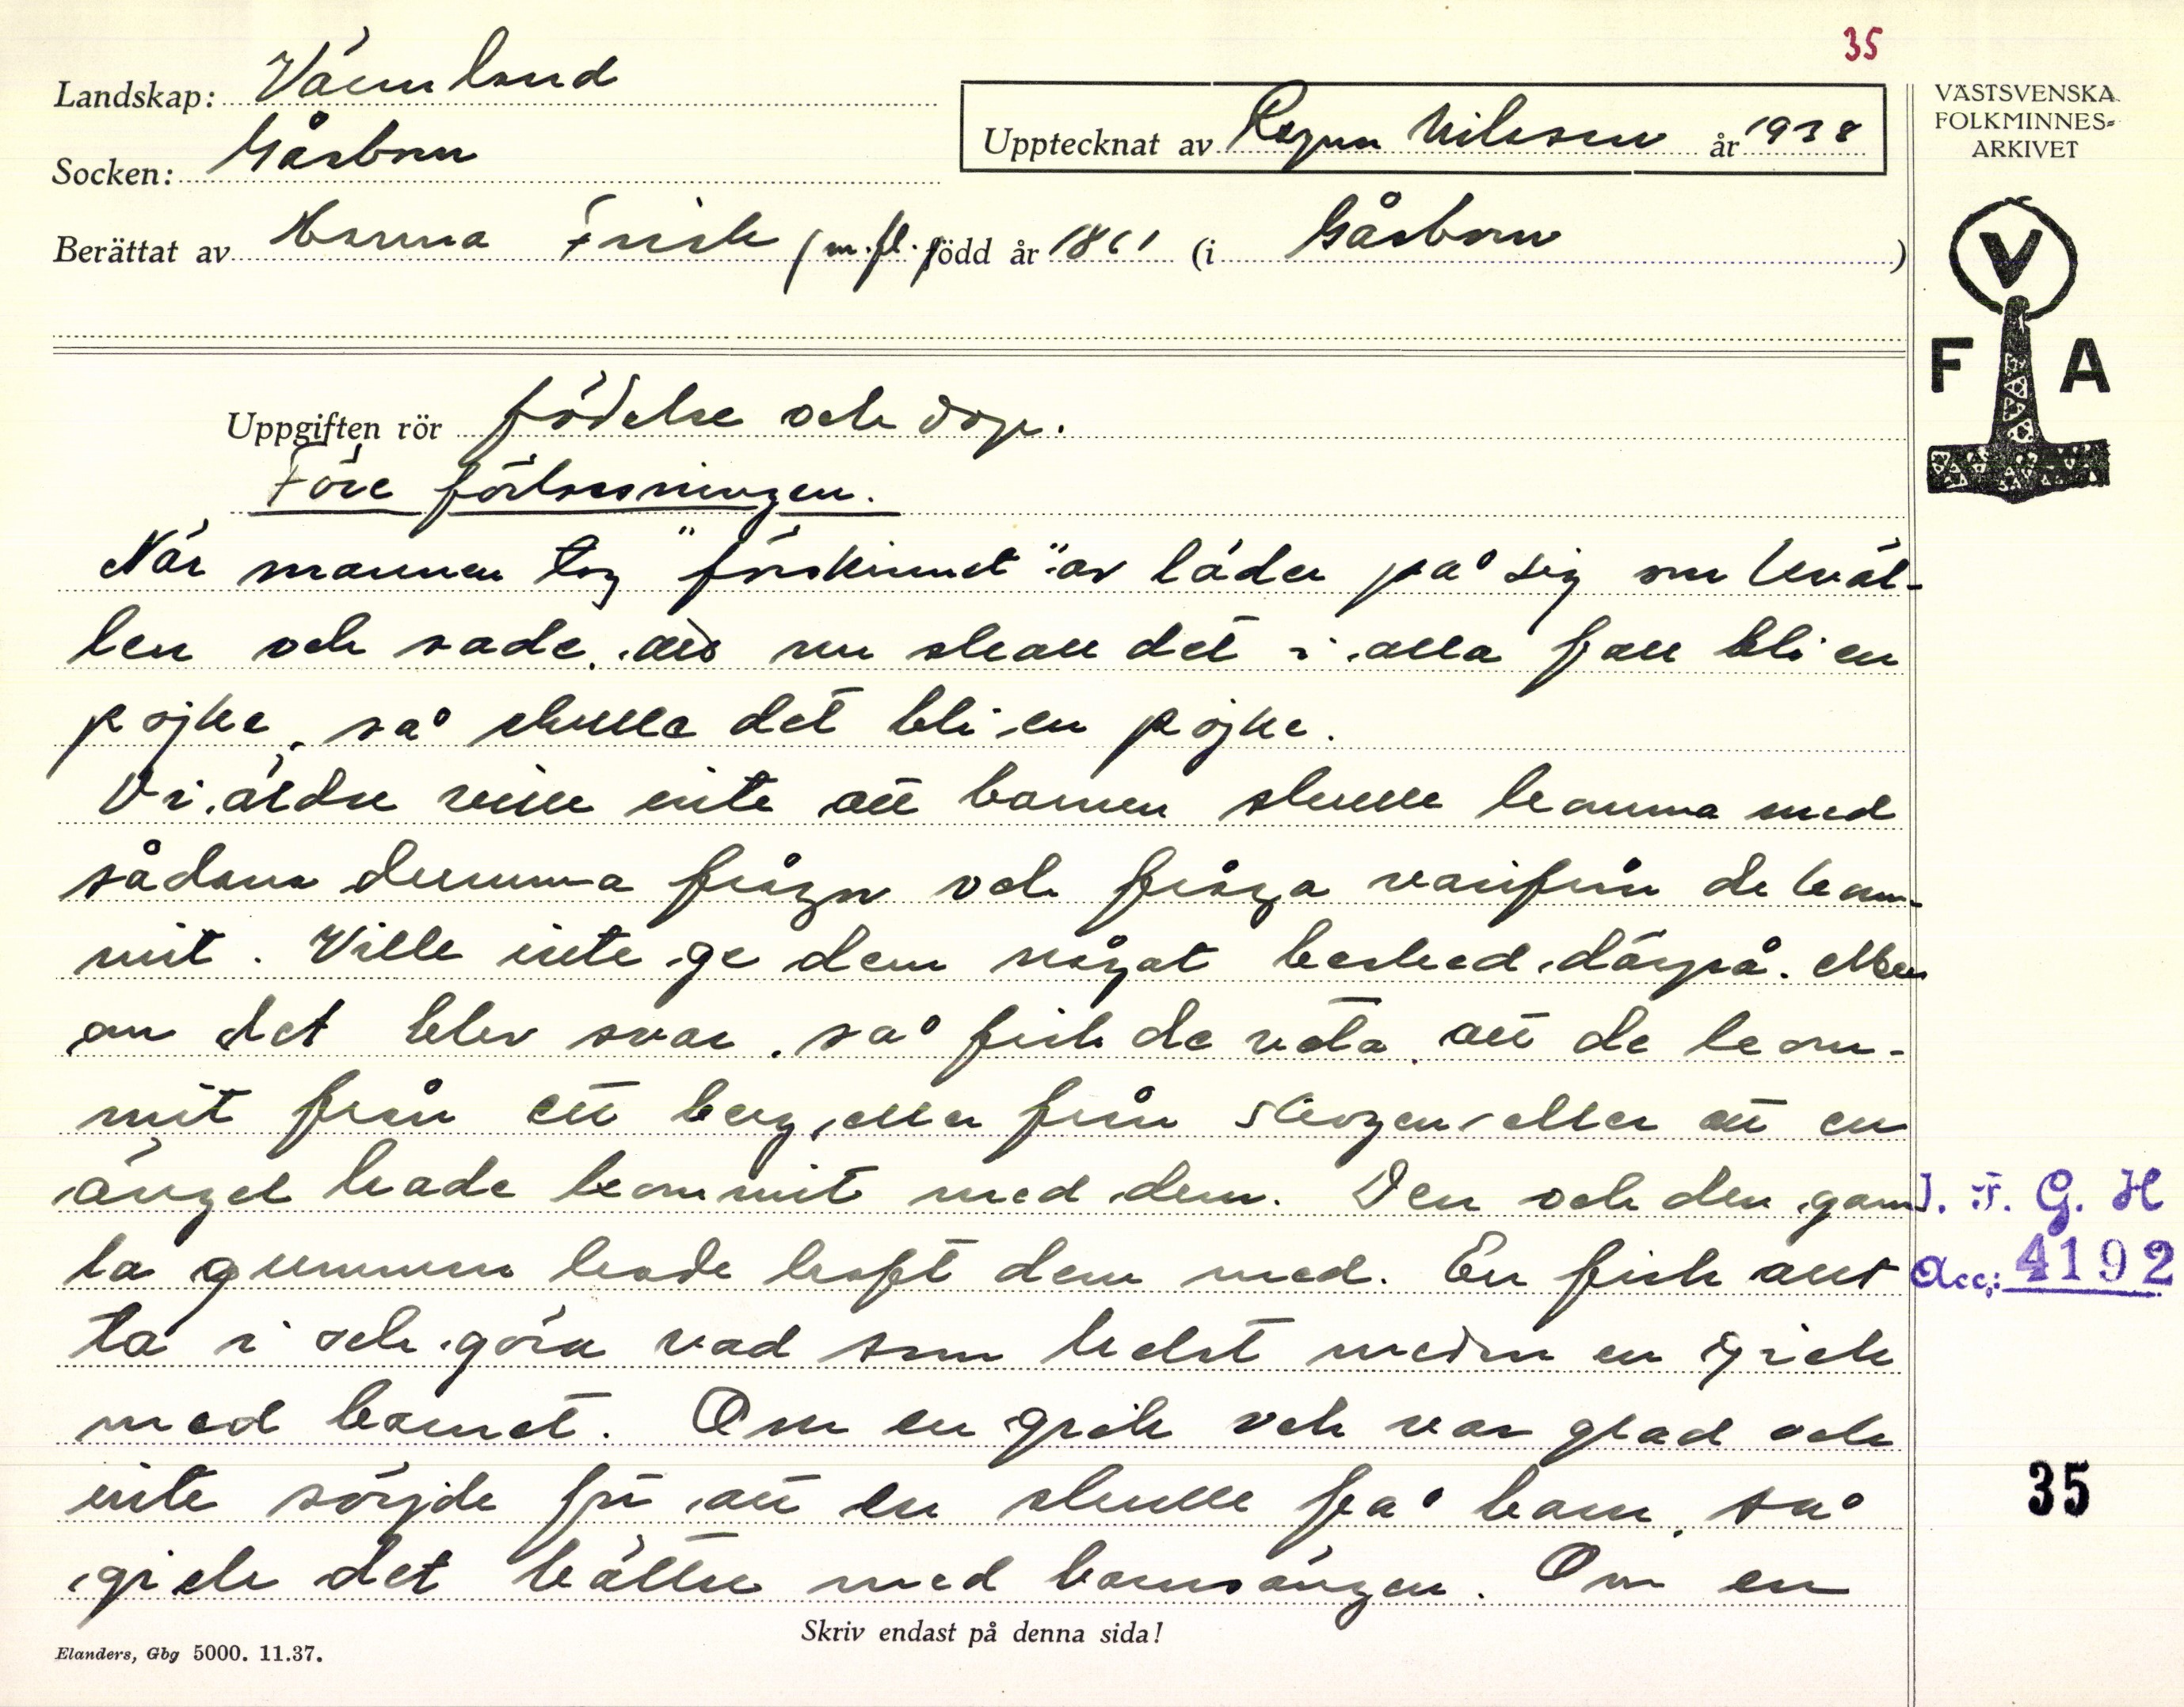 35
Landskap: Värmland
Socken: Gåsborn
Upptecknat av Ragnar Nilsson år 1938
VÄSTSVENSKA
FOLKMINNES-
ARKIVET
Berättat av Hanna Frisk (m.fl. född år 1861 (i Gåsborn)
V
F A
Uppgiften rör födelse och dop.
Före förlossningen.
När mannen tog "förskinnet" av läder på sig om kväl-
len och sade, att nu skall det i alla fall bli en
pojke, så skulle det bli en pojke.
De äldre ville inte att barnen skulle komma med
sådana dumma frågor och fråga varifrån de kom-
mit. Ville inte ge dem något besked därpå. Men
om det blev svar, så fick de veta, att de kom-
mit från ett berg, eller från skogen eller att en
ängel hade kommit med dem. Den och den gam
la gumman hade haft dem med. En fick allt
ta i och göra vad som helst medan en gick
med barnet. Om en gick och var glad och
inte sörjde för att en skulle få barn, så
gick det bättre med barnsängen. Om en
I. F. G. H
Acc: 4192
35
Skriv endast på denna sida!
Elanders, Gbg 5000. 11.37.